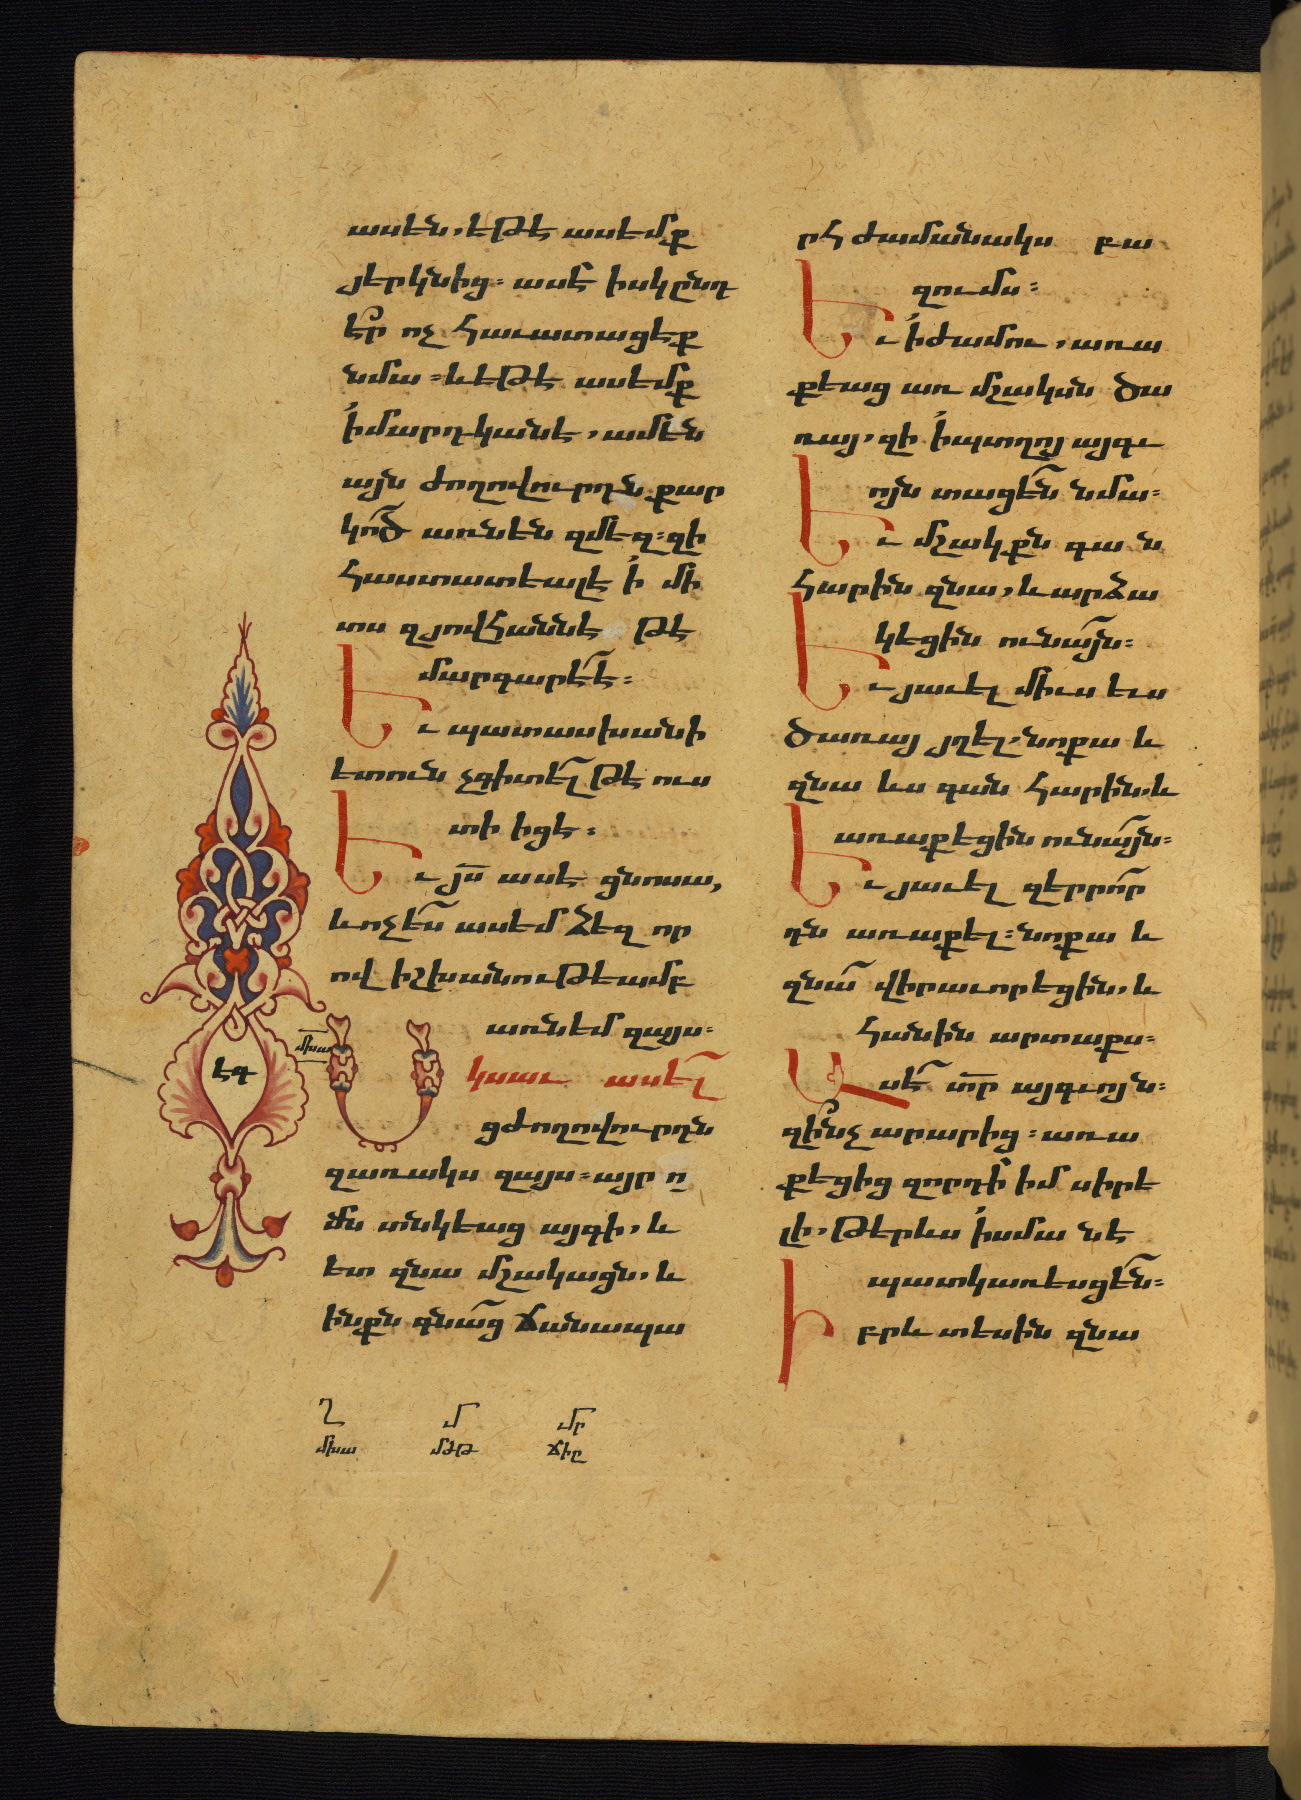 ասեն, եթէ ասեմք
յերկնից։ ասէ իսկ ընդ
է՞ր ոչ հաւատացէք
նմա։ և եթէ ասեմք
ի մարդկանէ, ամէն
այն ժողովուրդն քար
կոծ առնեն զմեզ։ զի
հաստատեալ է ի մի
տս զյովհաննէ թէ
մարգարէ է։
Եւ պատասխանի
ետուն չգիտեմ թէ ուս
տի իցէ։
Եւ յս ասէ ցնոսա,
և ոչ ես ասեմ ձեզ որ
ով իշխանութեամբ
առնեմ զայս։
Սկսաւ ասել
ցժողովուրդն
զառակս զայս։ այր ո
մն տնկեաց այգի, և
ետ զնա մշակաց, և
ինքն գնաց ճանապա
րհ ժամանակս բա
զումս։
Եւ ի ժամու, առա
քեաց առ մշակսն ծա
ռայ, զի ի պտղոյ այգւ
ոյն տացեն նմա։
Եւ մշակքն գա ն
հարին զնա, և արձա
կեցին ունայն։
Եւ յաւել միւս ևս
ծառայ յղել. նոքա և
զնա ևս գան հարին. և
առաքեցին ունայն։
Եւ յաւել զերրոր
դն առաքել։ նոքա և
զնա վիրաւորեցին, և
հանին արտաքս։
Ասէ տր այգւոյն։
զի՞նչ արարից։ առա
քեցից զորդի իմ սիրե
լի, թերևս ի սմա նէ
պատկառեսցեն։
Իբրև տեսին զնա
մխա
էգ
Ղ Մ Մր
մխա մձթ ճիը